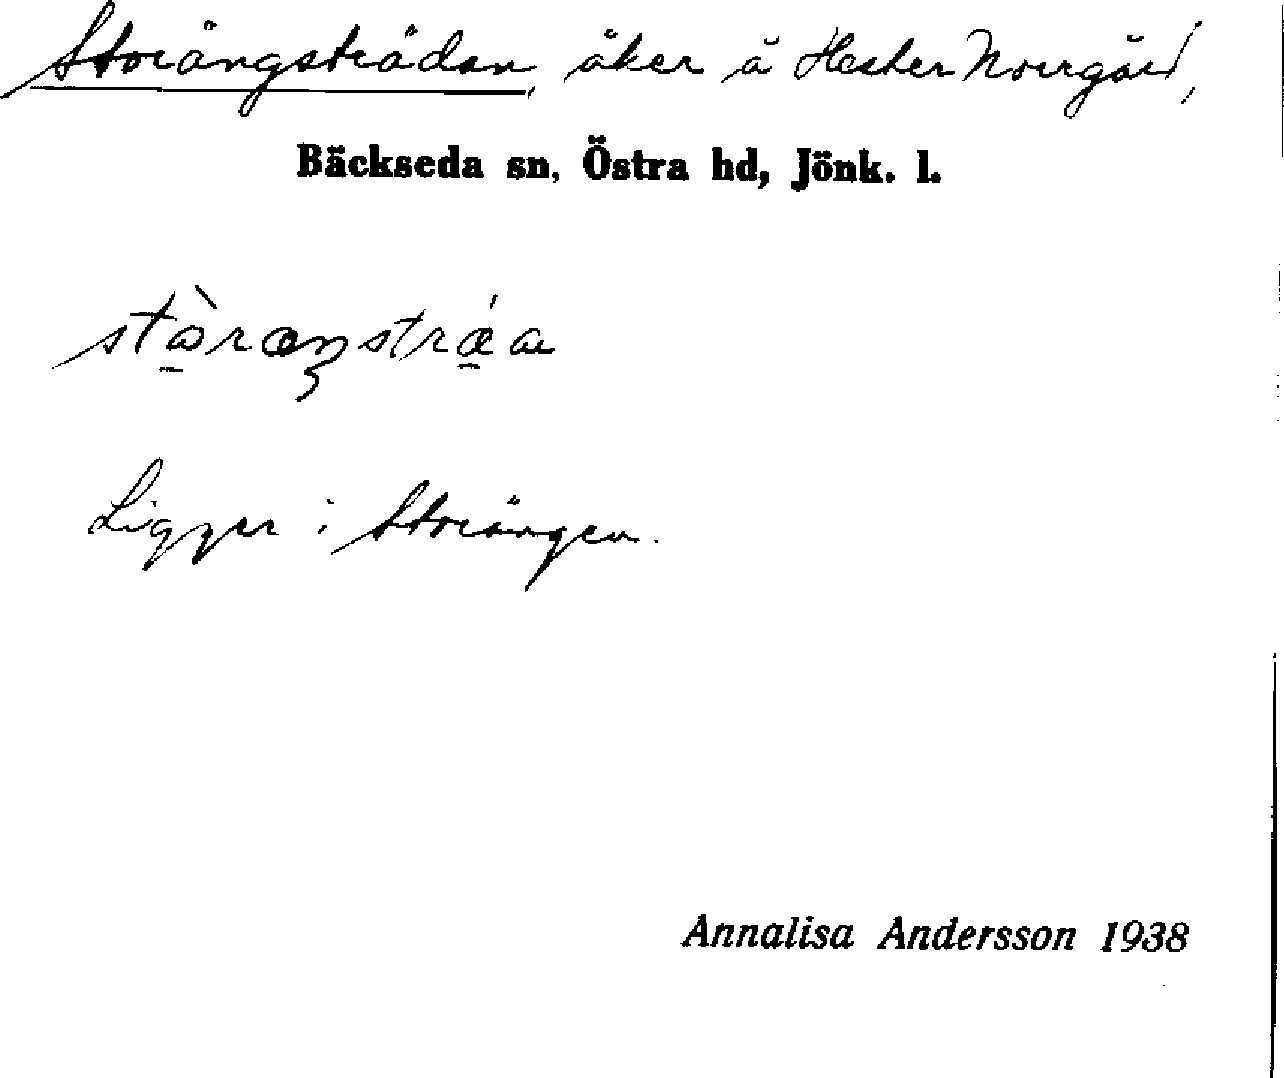 Storängsträdan, åker å Hester Norrgård,
Bäckseda sn, Östra hd, Jönk. l.
Ligger i Storängen.
Annalisa Andersson 1938